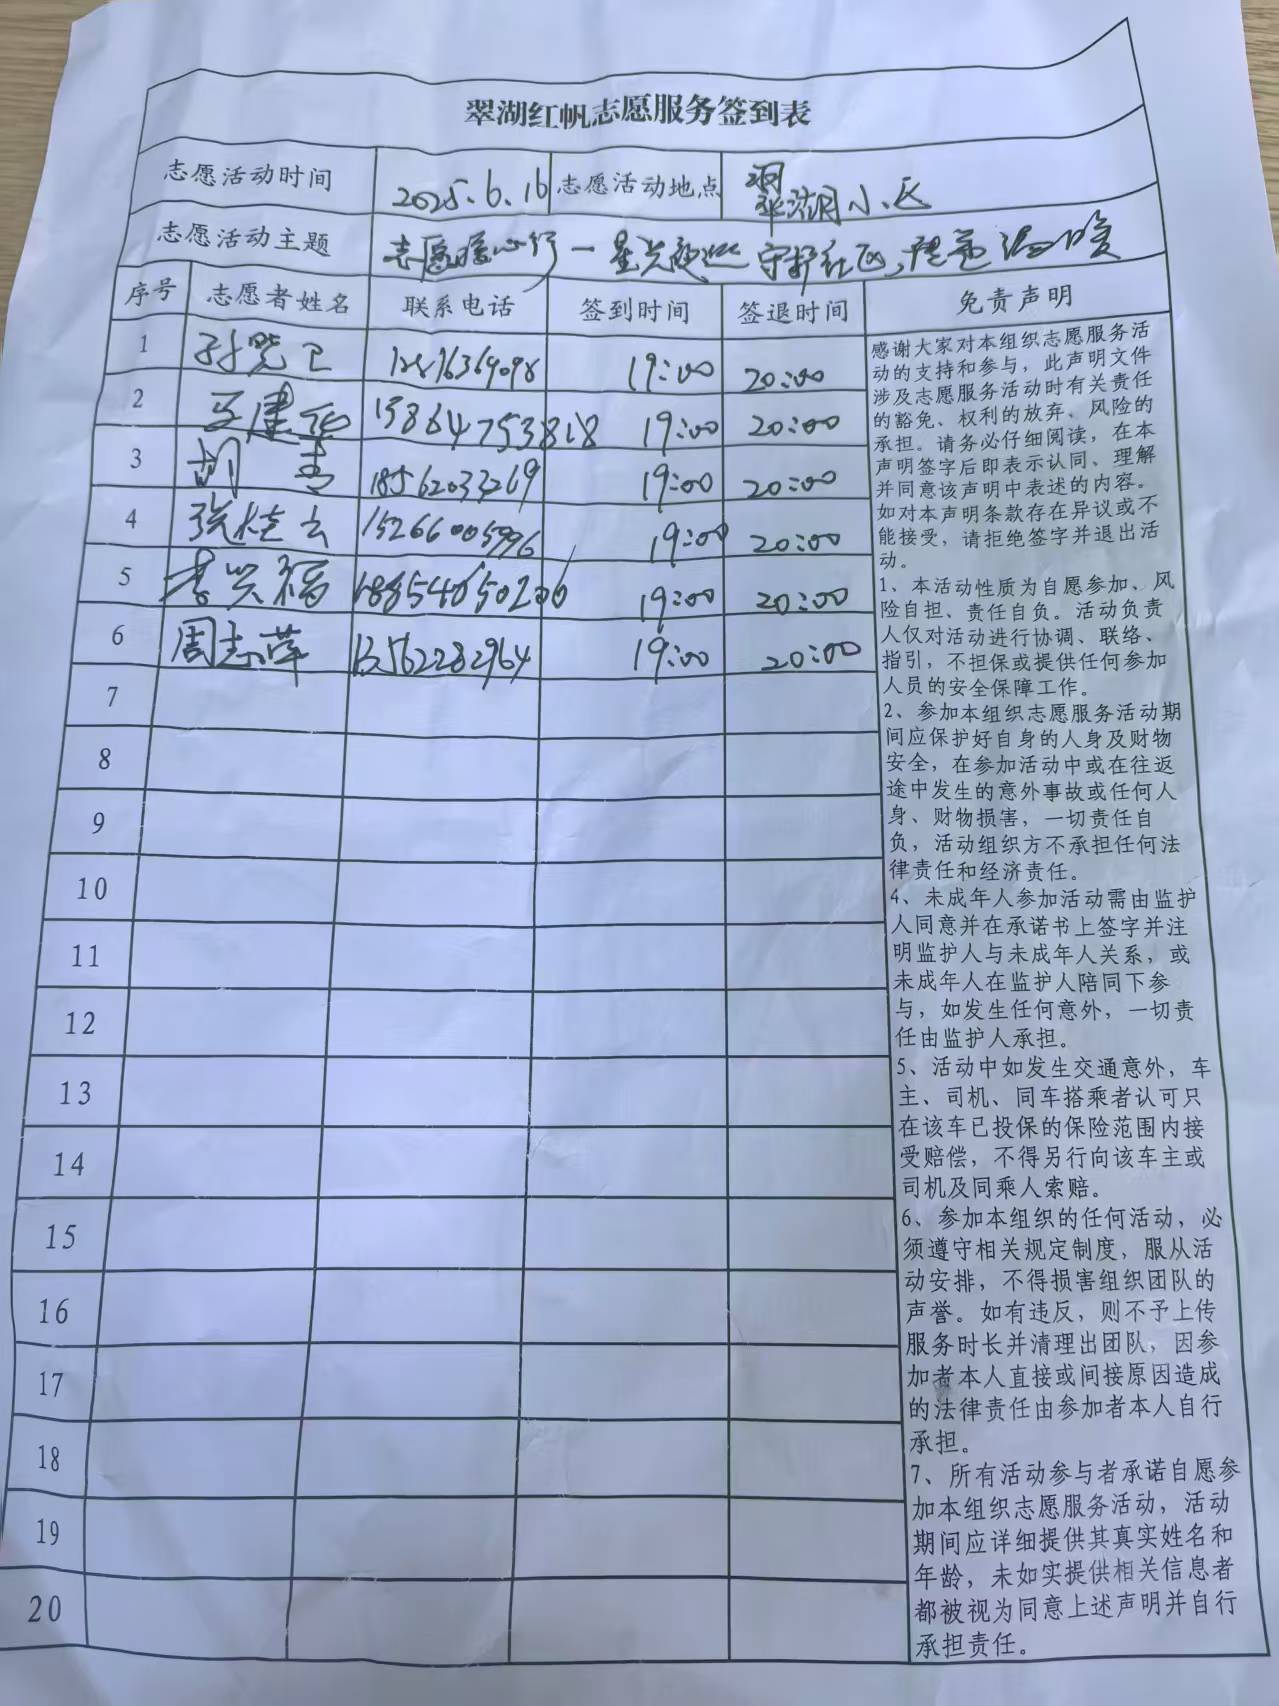 翠湖红帆志愿服务签到表
志愿活动时间 2025.6.16 志愿活动地点 翠湖小区
志愿活动主题 志愿暖心行一星光夜巡 守护社区,传递温暖
序号 志愿者姓名 联系电话 签到时间 签退时间 免责声明
1 19:00 20:00
2 15864753818 19:00 20:00
3 胡 18562033269 19:00 20:00
4 张桂云 15266005996 19:00 20:00
5 李兴福 18854050206 19:00 20:00
6 周志萍 13562282964 19:00 20:00
7
8
9
10
11
12
13
14
15
16
17
18
19
20
感谢大家对本组织志愿服务活
动的支持和参与,此声明文件
涉及志愿服务活动时有关责任
的豁免、权利的放弃、风险的
承担。请务必仔细阅读,在本
声明签字后即表示认同、理解
并同意该声明中表述的内容。
如对本声明条款存在异议或不
能接受,请拒绝签字并退出活
动。
1、本活动性质为自愿参加、风
险自担、责任自负。活动负责
人仅对活动进行协调、联络、
指引,不担保或提供任何参加
人员的安全保障工作。
2、参加本组织志愿服务活动期
间应保护好自身的人身及财物
安全,在参加活动中或在往返
途中发生的意外事故或任何人
身、财物损害,一切责任自
负,活动组织方不承担任何法
律责任和经济责任。
4、未成年人参加活动需由监护
人同意并在承诺书上签字并注
明监护人与未成年人关系,或
未成年人在监护人陪同下参
与,如发生任何意外,一切责
任由监护人承担。
5、活动中如发生交通意外,车
主、司机、同车搭乘者认可只
在该车已投保的保险范围内接
受赔偿,不得另行向该车主或
司机及同乘人索赔。
6、参加本组织的任何活动,必
须遵守相关规定制度,服从活
动安排,不得损害组织团队的
声誉。如有违反,则不予上传
服务时长并清理出团队,因参
加者本人直接或间接原因造成
的法律责任由参加者本人自行
承担。
7、所有活动参与者承诺自愿参
加本组织志愿服务活动,活动
期间应详细提供其真实姓名和
年龄,未如实提供相关信息者
都被视为同意上述声明并自行
承担责任。